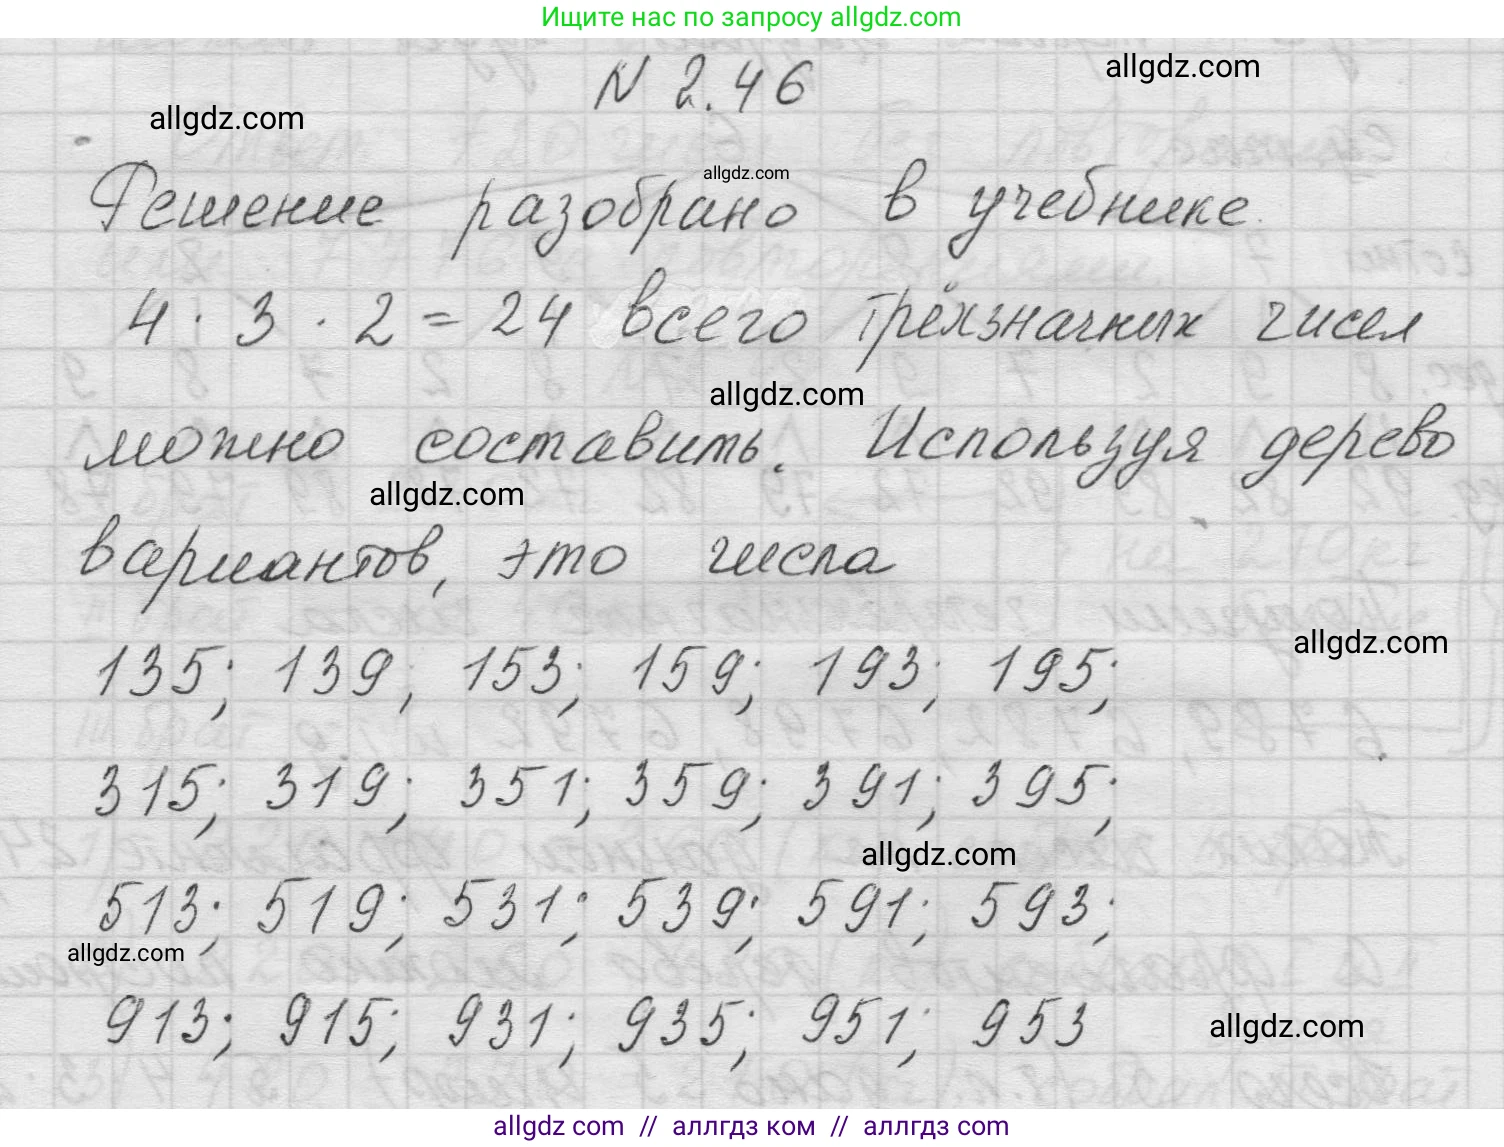 Ищите нас по запросу allgdz.com
N 2.46
allgdz.com
allgdz.com
Решение разобрано в учебнике.
allgdz.com
4 · 3 · 2 = 24 всего трёхзначных чисел
allgdz.com
можно составить. Используя дерево
allgdz.com
вариантов, это числа
allgdz.com
135; 139; 153; 159; 193; 195;
315; 319; 351; 359; 391; 395;
allgdz.com
513; 519; 531; 539; 591; 593;
allgdz.com
913; 915; 931; 935; 951; 953
allgdz.com
allgdz com // аллгдз ком // allgdz com